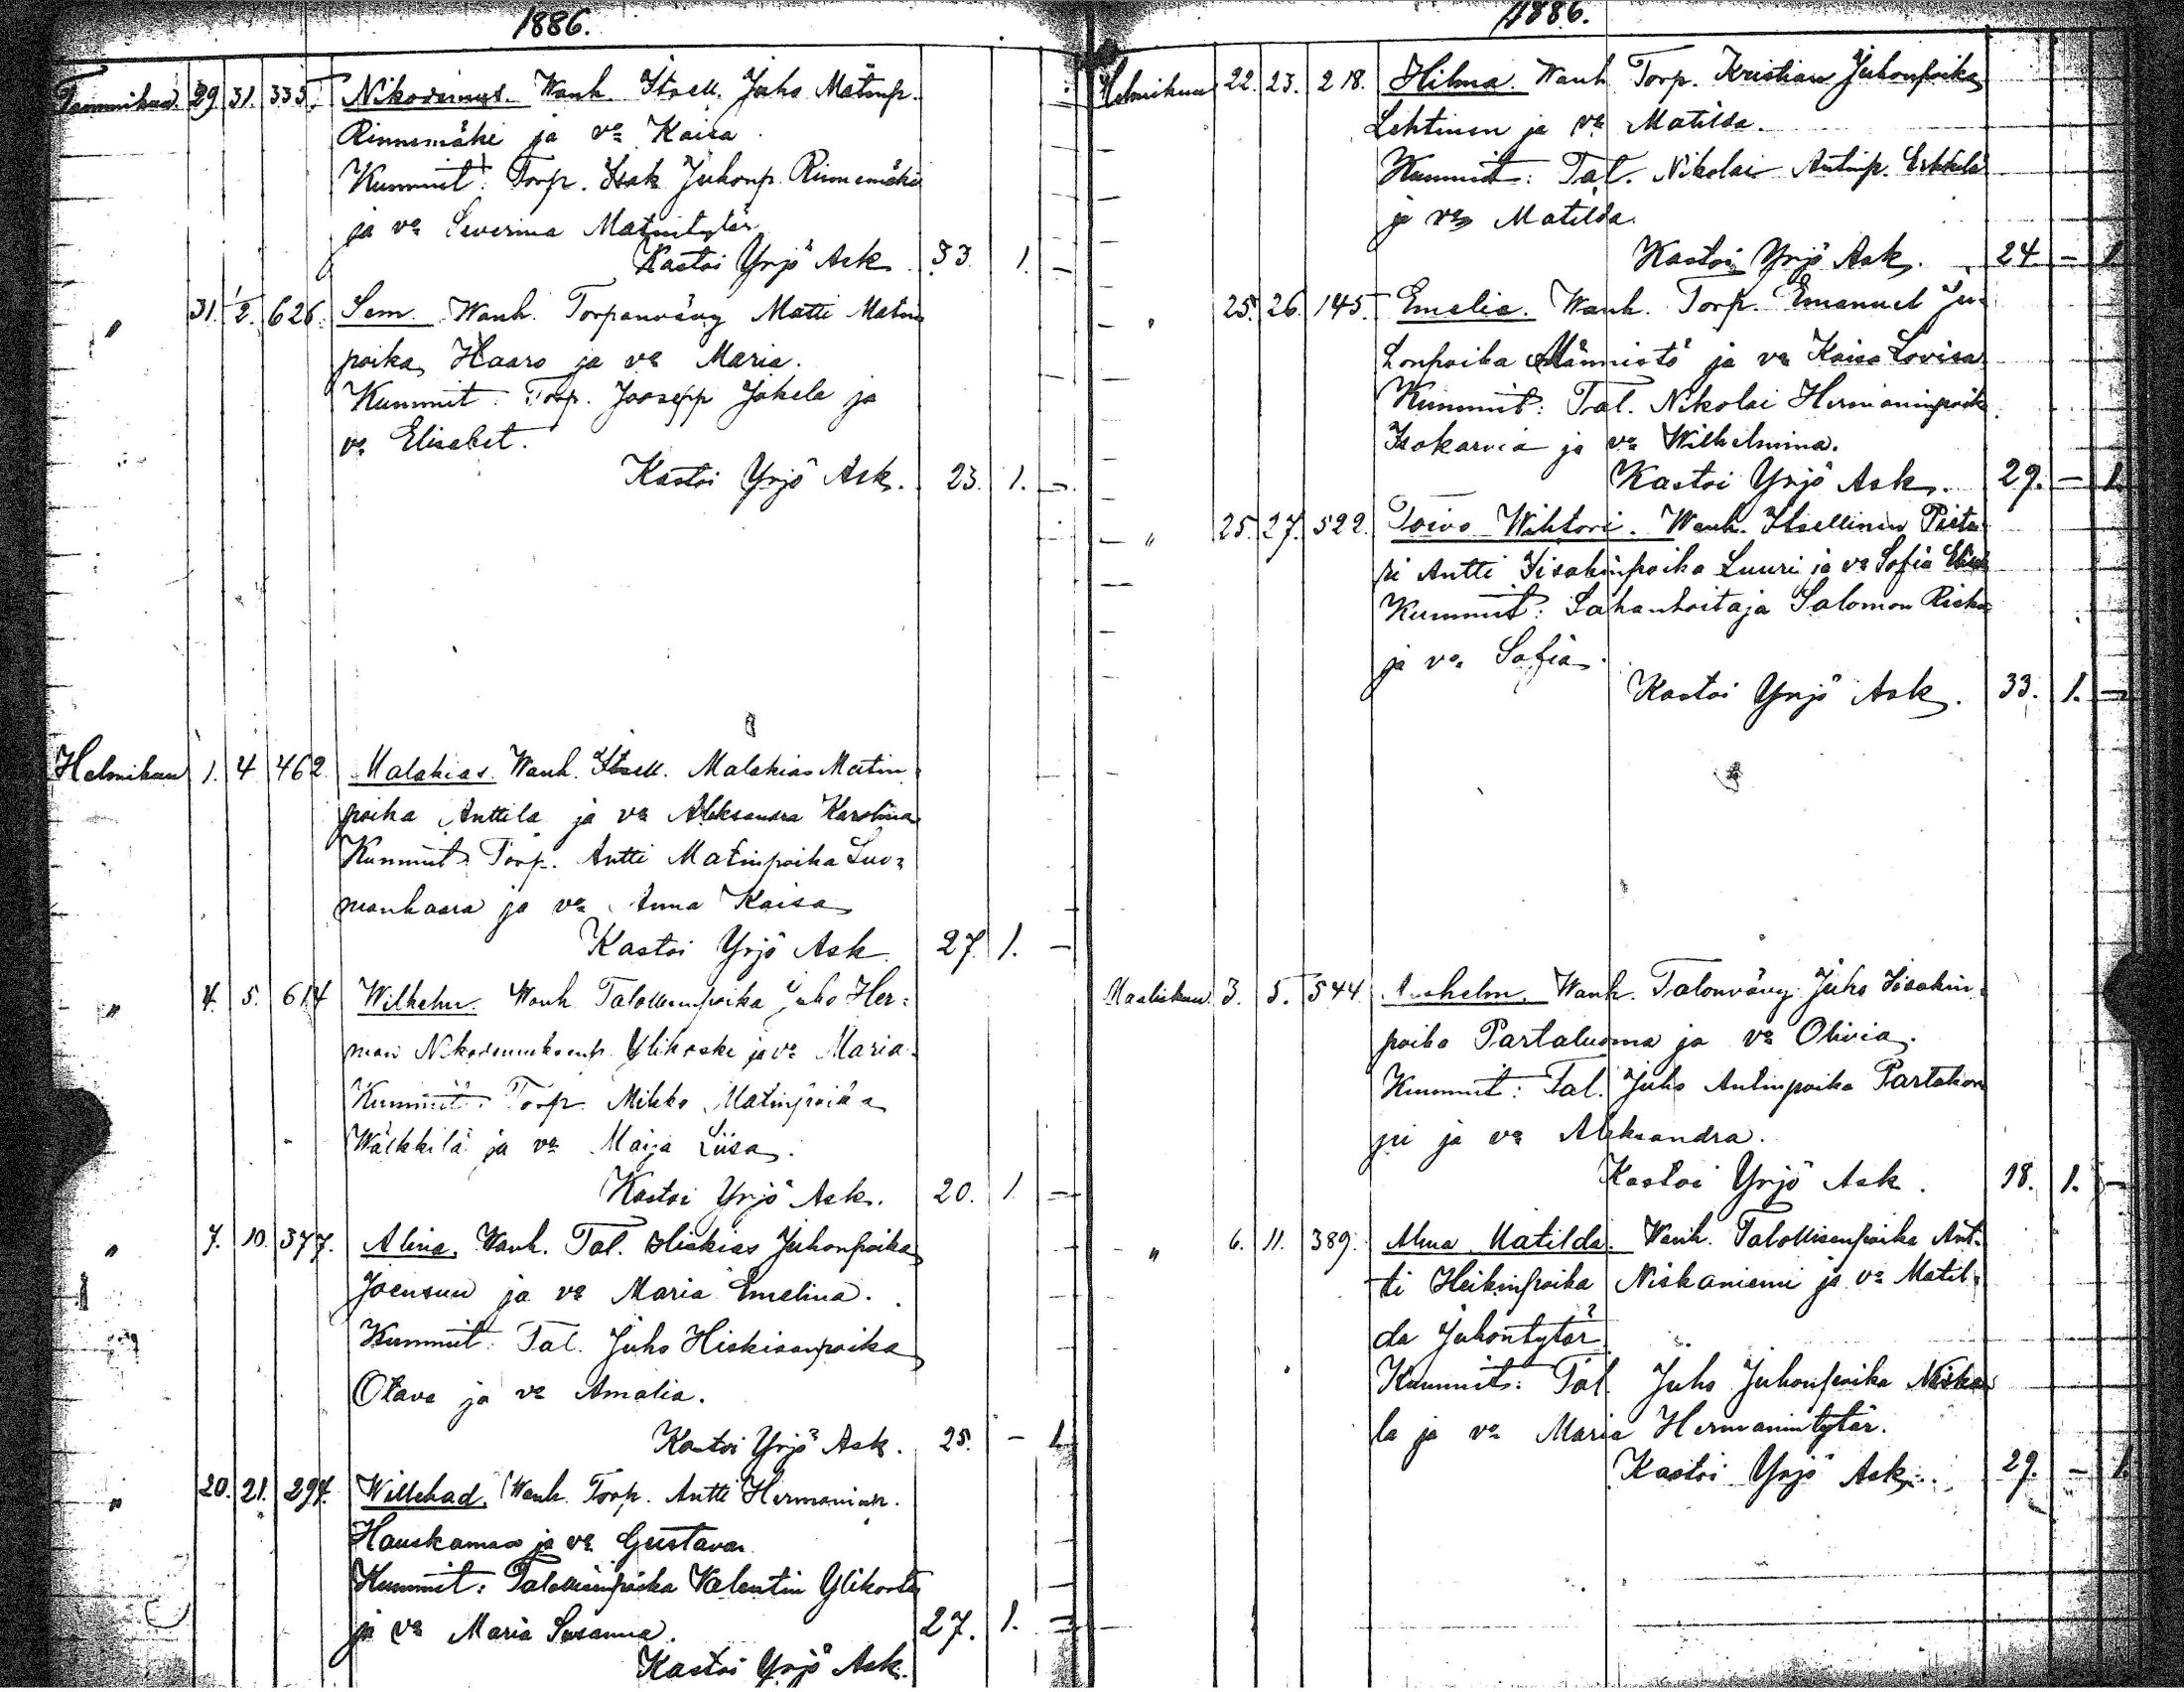 1886.
Tammikuu 29 31. 335. Nikodemus. Wanh. Itsell. Juho Matinp.
Rinnemäki ja vo Kaisa
Kummit: Torp. Isak Juhonp. Rinnemäki
ja vo Severina Matintytär
Kastoi Yrjö Ask. 33 1. –
" 31. 1/2. 626. Sem Wanh. Torpanvävy Matti Matin
poika Haaro ja vo Maria.
Kummit: Torp. Joosepp Jokela ja
vo Elisabet.
Kastoi Yrjö Ask. 23. 1. –
Helmikuu 1. 4 462 Malakias. Wanh. Itsell. Malakias Matin
poika Anttila ja vo Aleksandra Karolina
Kummit: Torp. Antti Matinpoika Luo=
manhaara ja vo Anna Kaisa
Kastoi Yrjö Ask 27. 1. –
" 4. 5. 614 Wilhelm. Wanh. Talollisenpoika Juho Her=
man Nikodemuksenp. Ylikoski ja vo Maria
Kummit: Torp. Mikko Matinpoika
Wälkkilä ja vo Maija Liisa.
Kastoi Yrjö Ask. 20. 1 –
" 7. 10. 377. Alina. Wanh. Tal. Hiskias Juhonpoika
Joensuu ja vo Maria Emelina.
Kummit: Tal. Juho Hiskiaanpoika
Otava ja vo Amalia.
Kastoi Yrjö Ask. 25. – 1
" 20. 21. 294. Willehad. Wanh. Torp. Antti Hermaninp.
Hauskamaa ja vo Gustava
Kummit: Talollisenpoika Valentin Ylikoski
ja vo Maria Susanna.
Kastoi Yrjö Ask. 27. 1. –
1886.
Helmikuu 22. 23. 218. Hilma. Wanh. Torp. Kristian Juhonpoika
Lehtinen ja vo Matilda.
Kummit: Tal. Nikolai Antinp. Erkkilä
ja vo Matilda.
Kastoi Yrjö Ask. 24. – 1
" 25. 26. 145. Emelia. Wanh. Torp. Emanuel Ju=
honpoika Männistö ja vo Kaisa Lovisa
Kummit: Tal. Nikolai Hermaninpoik
Isokarvia ja vo Wilhelmina.
Kastoi Yrjö Ask. 29. – 1.
" 25. 27. 522. Toivo Wihtori. Wanh. Itsellinen
ri Antti Iisakinpoika Luuri ja vo Sofia
Kummit: Sahanhoitaja Salomon
ja vo Sofia.
Kastoi Yrjö Ask. 33. 1. –
Maaliskuu 3. 5. 544 Anshelm. Wanh. Talonvävy Juho Iisakin
poika Partaluoma ja vo Olivia.
Kummit: Tal. Juho Antinpoika Partakor
pi ja vo Aleksandra.
Kastoi Yrjö Ask. 18. 1. –
" 6. 11. 389. Alma Matilda. Wanh. Talollisenpoika Ant=
ti Heikinpoika Niskaniemi ja vo Matil=
da Juhontytär
Kummit: Tal. Juho Juhonpoika Niska
la ja vo Maria Hermanintytär.
Kastoi Yrjö Ask. 29. – 1.